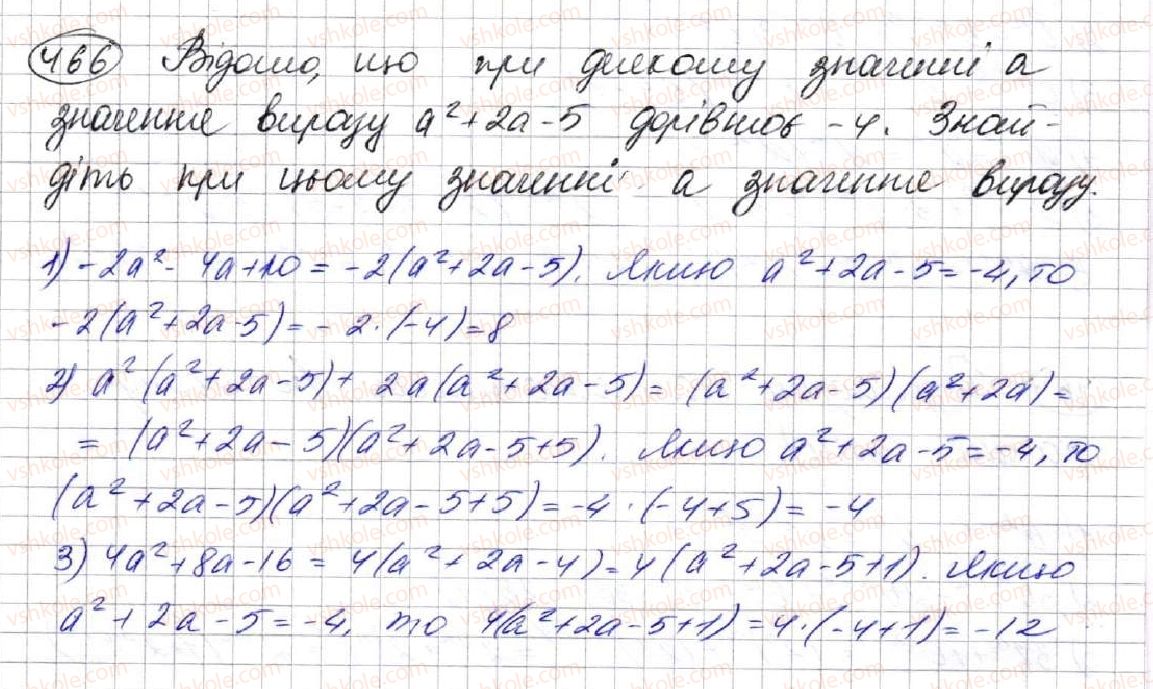 466 Відомо, що при деякому значенні a
значення виразу a²+2a-5 дорівнює -4. Знай-
діть при цьому значенні a значення виразу.
1) -2a²-4a+10=-2(a²+2a-5). Якщо a²+2a-5=-4, то
-2(a²+2a-5)=-2·(-4)=8
2) a²(a²+2a-5)+2a(a²+2a-5)=(a²+2a-5)(a²+2a)=
=(a²+2a-5)(a²+2a-5+5). Якщо a²+2a-5=-4, то
(a²+2a-5)(a²+2a-5+5)=-4·(-4+5)=-4
3) 4a²+8a-16=4(a²+2a-4)=4(a²+2a-5+1). Якщо
a²+2a-5=-4, то 4(a²+2a-5+1)=4·(-4+1)=-12
vshkole.com